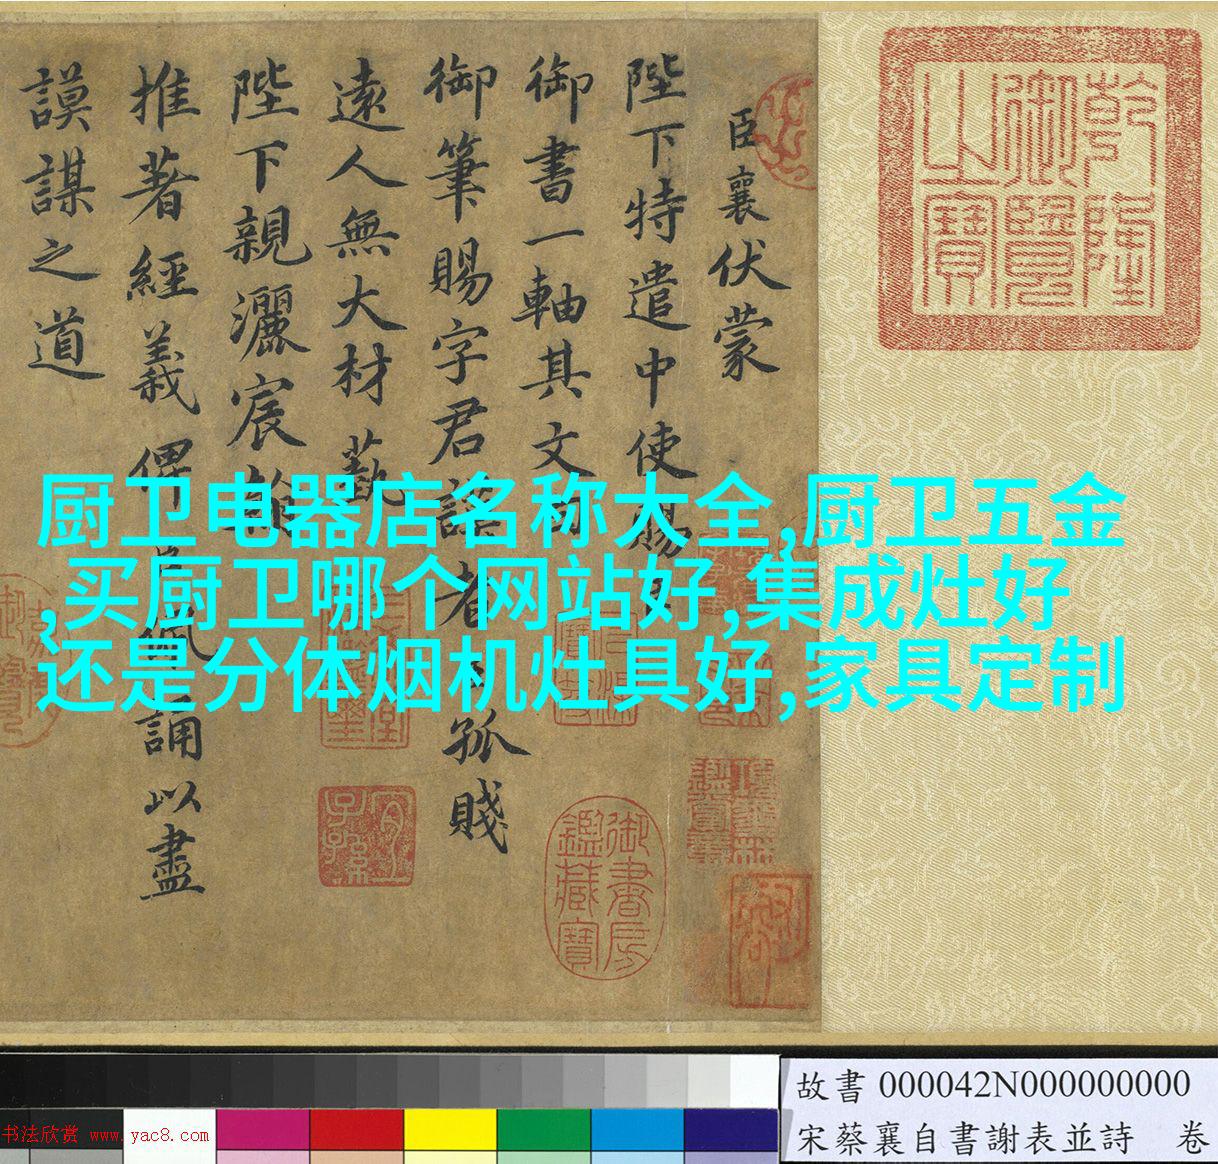 乾隆御覽之寶
臣襄伏蒙
陛下特遣中使賜
御書一軸其文曰
御筆賜字君謨者臣孤賤
遠人無大材藝
陛下親灑宸翰
推著經義俾臣佩誦以盡
謨謀之道
厨卫电器店名称大全,厨卫五金
,买厨卫哪个网站好,集成灶好
还是分体烟机灶具好,家具定制
御書房鑑藏寶
宜子孫
故書 000042N000000000
宋蔡襄自書謝表並詩 卷
书法欣赏 www.yac8.com